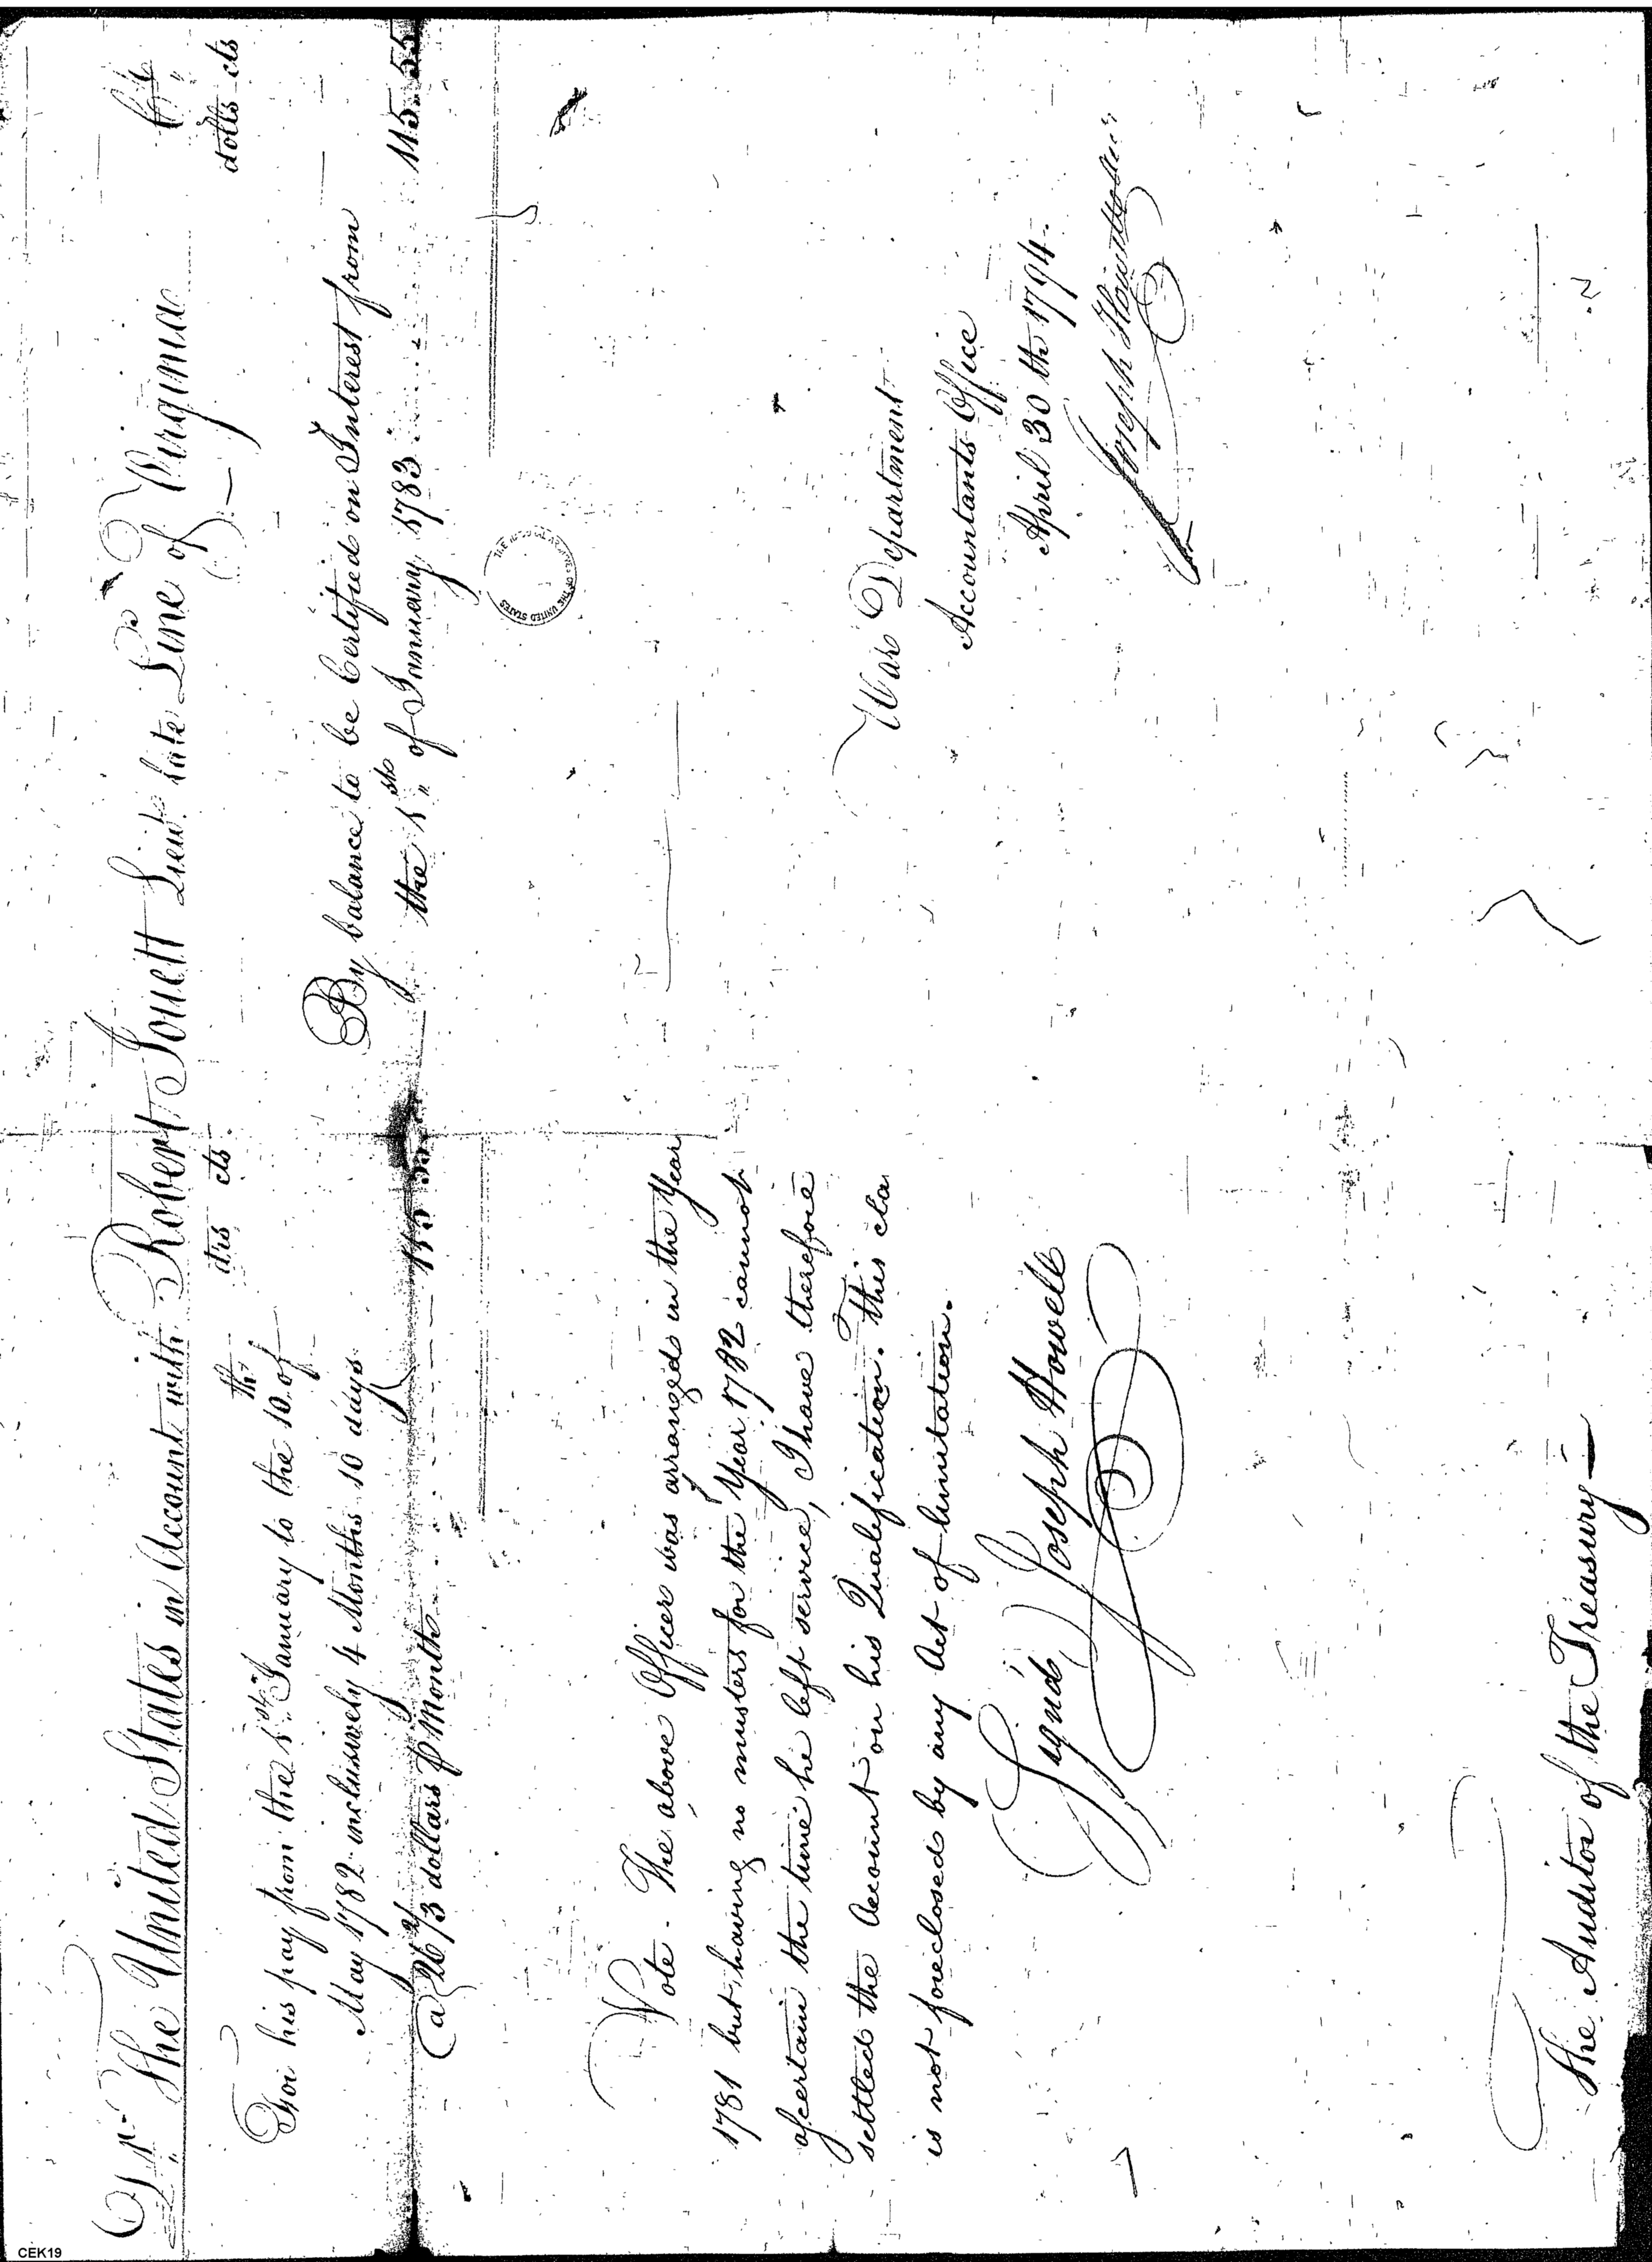 Dr. The United States in Account with Robert Jouett Lieut. late Line of Virginia Cr.
drs cts. dolls cts
For his pay from the 1st January to the 10th of
May 1782 inclusively 4 Months 10 days
@ 26 2/3 dollars P Month 115.55
By balance to be Certified on Interest from
the 1st of January 1783 115.55
THE NATIONAL ARCHIVES OF THE UNITED STATES
Note. The above Officer was arranged in the Year
1781 but having no musters for the Year 1782 cannot
ascertain the time he left service, I have therefore
settled the Account on his Qualification. This cla
is not foreclosed by any Act of limitation.
Signd Joseph Howell
War Department
Accountants Office
April 30th 1794.
Joseph Howell
The Auditor of the Treasury
CEK19